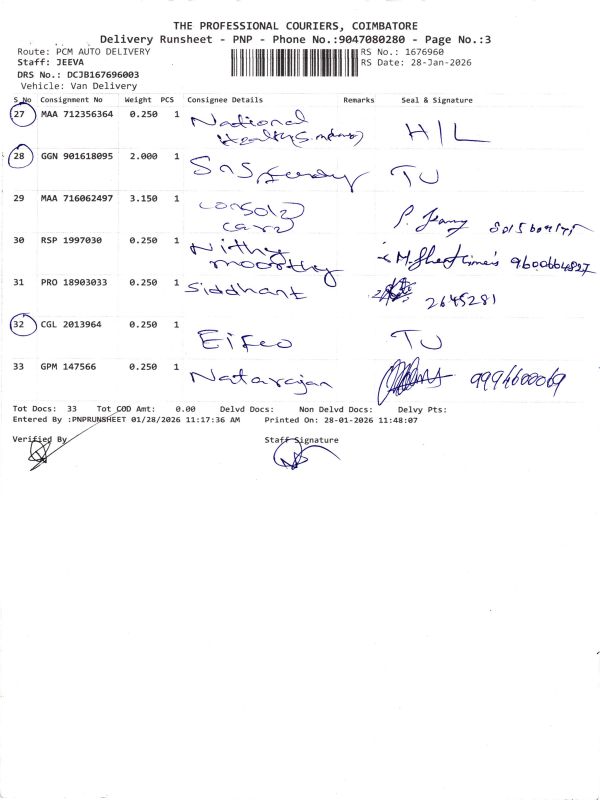 THE PROFESSIONAL COURIERS, COIMBATORE
Delivery Runsheet - PNP - Phone No.:9047080280 - Page No.:3
Route: PCM AUTO DELIVERY RS No.: 1676960
Staff: JEEVA RS Date: 28-Jan-2026
DRS No.: DCJB167696003
Vehicle: Van Delivery
S_No Consignment No Weight PCS Consignee Details Remarks Seal & Signature
27 MAA 712356364 0.250 1 National H/L
28 GGN 901618095 2.000 1 SnS TU
29 MAA 716062497 3.150 1 consolz
care P. Jenny
30 RSP 1997030 0.250 1 Nithy
moorthy 9600664827
31 PRO 18903033 0.250 1 Siddhant 2645281
32 CGL 2013964 0.250 1 Eifeo TU
33 GPM 147566 0.250 1 Natarajan 9994600069
Tot Docs: 33 Tot COD Amt: 0.00 Delvd Docs: Non Delvd Docs: Delvy Pts:
Entered By :PNPRUNSHEET 01/28/2026 11:17:36 AM Printed On: 28-01-2026 11:48:07
Verified By Staff Signature